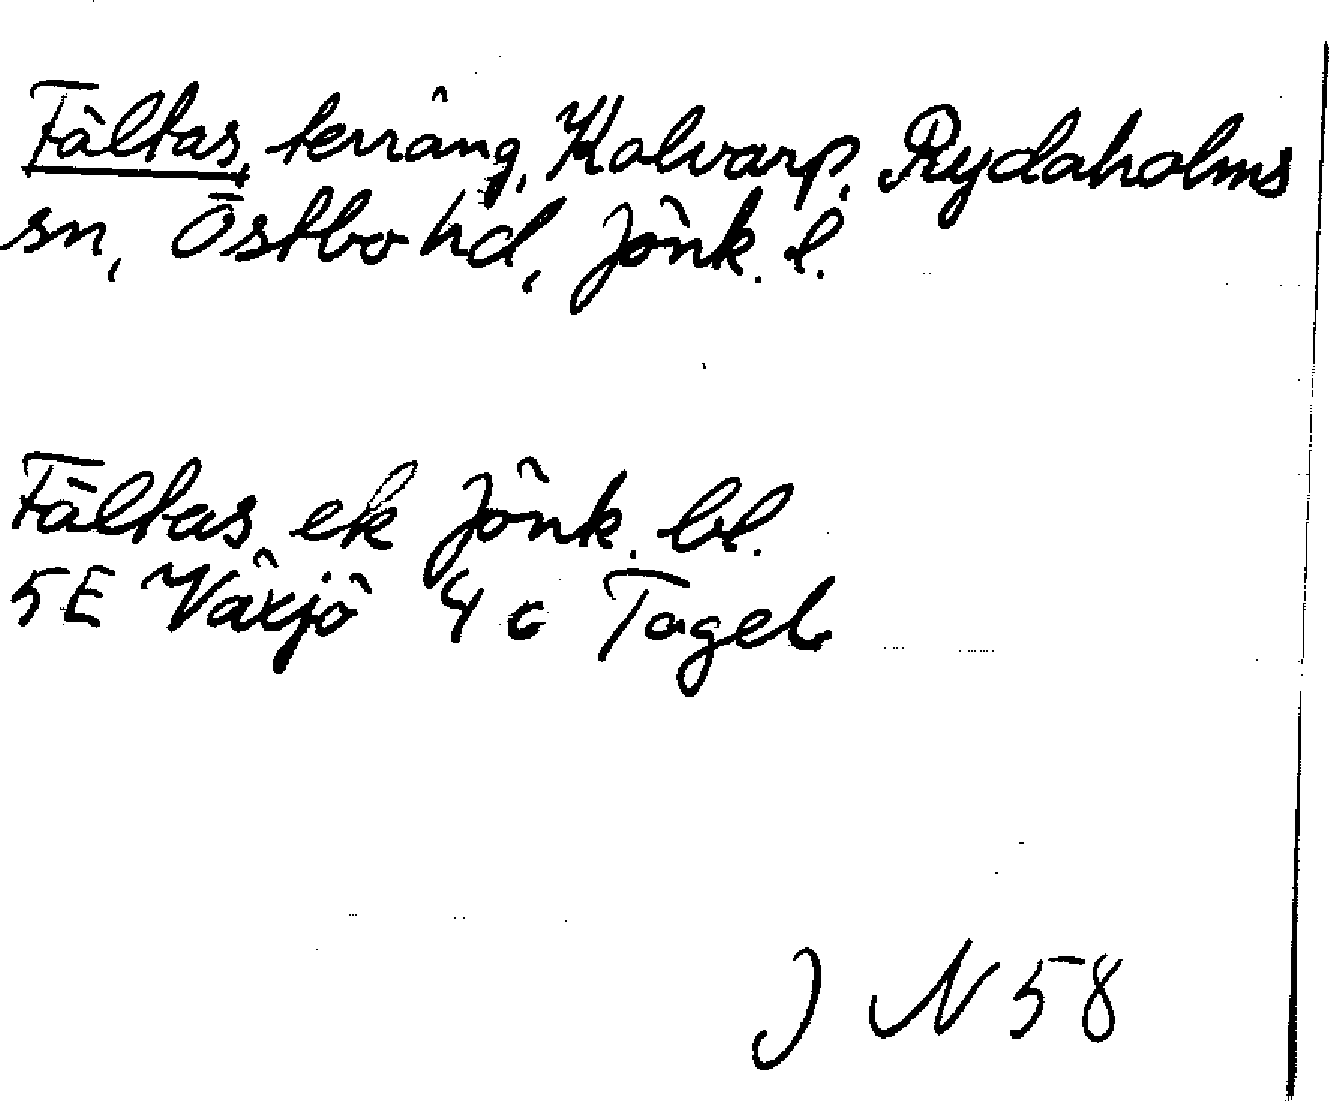 Fältas, terräng, Kalvarp, Rydaholms
sn, Östbo hd, Jönk. l.
Fältas ek Jönk. bl.
5E Växjö 4 c Tagel
J N 58